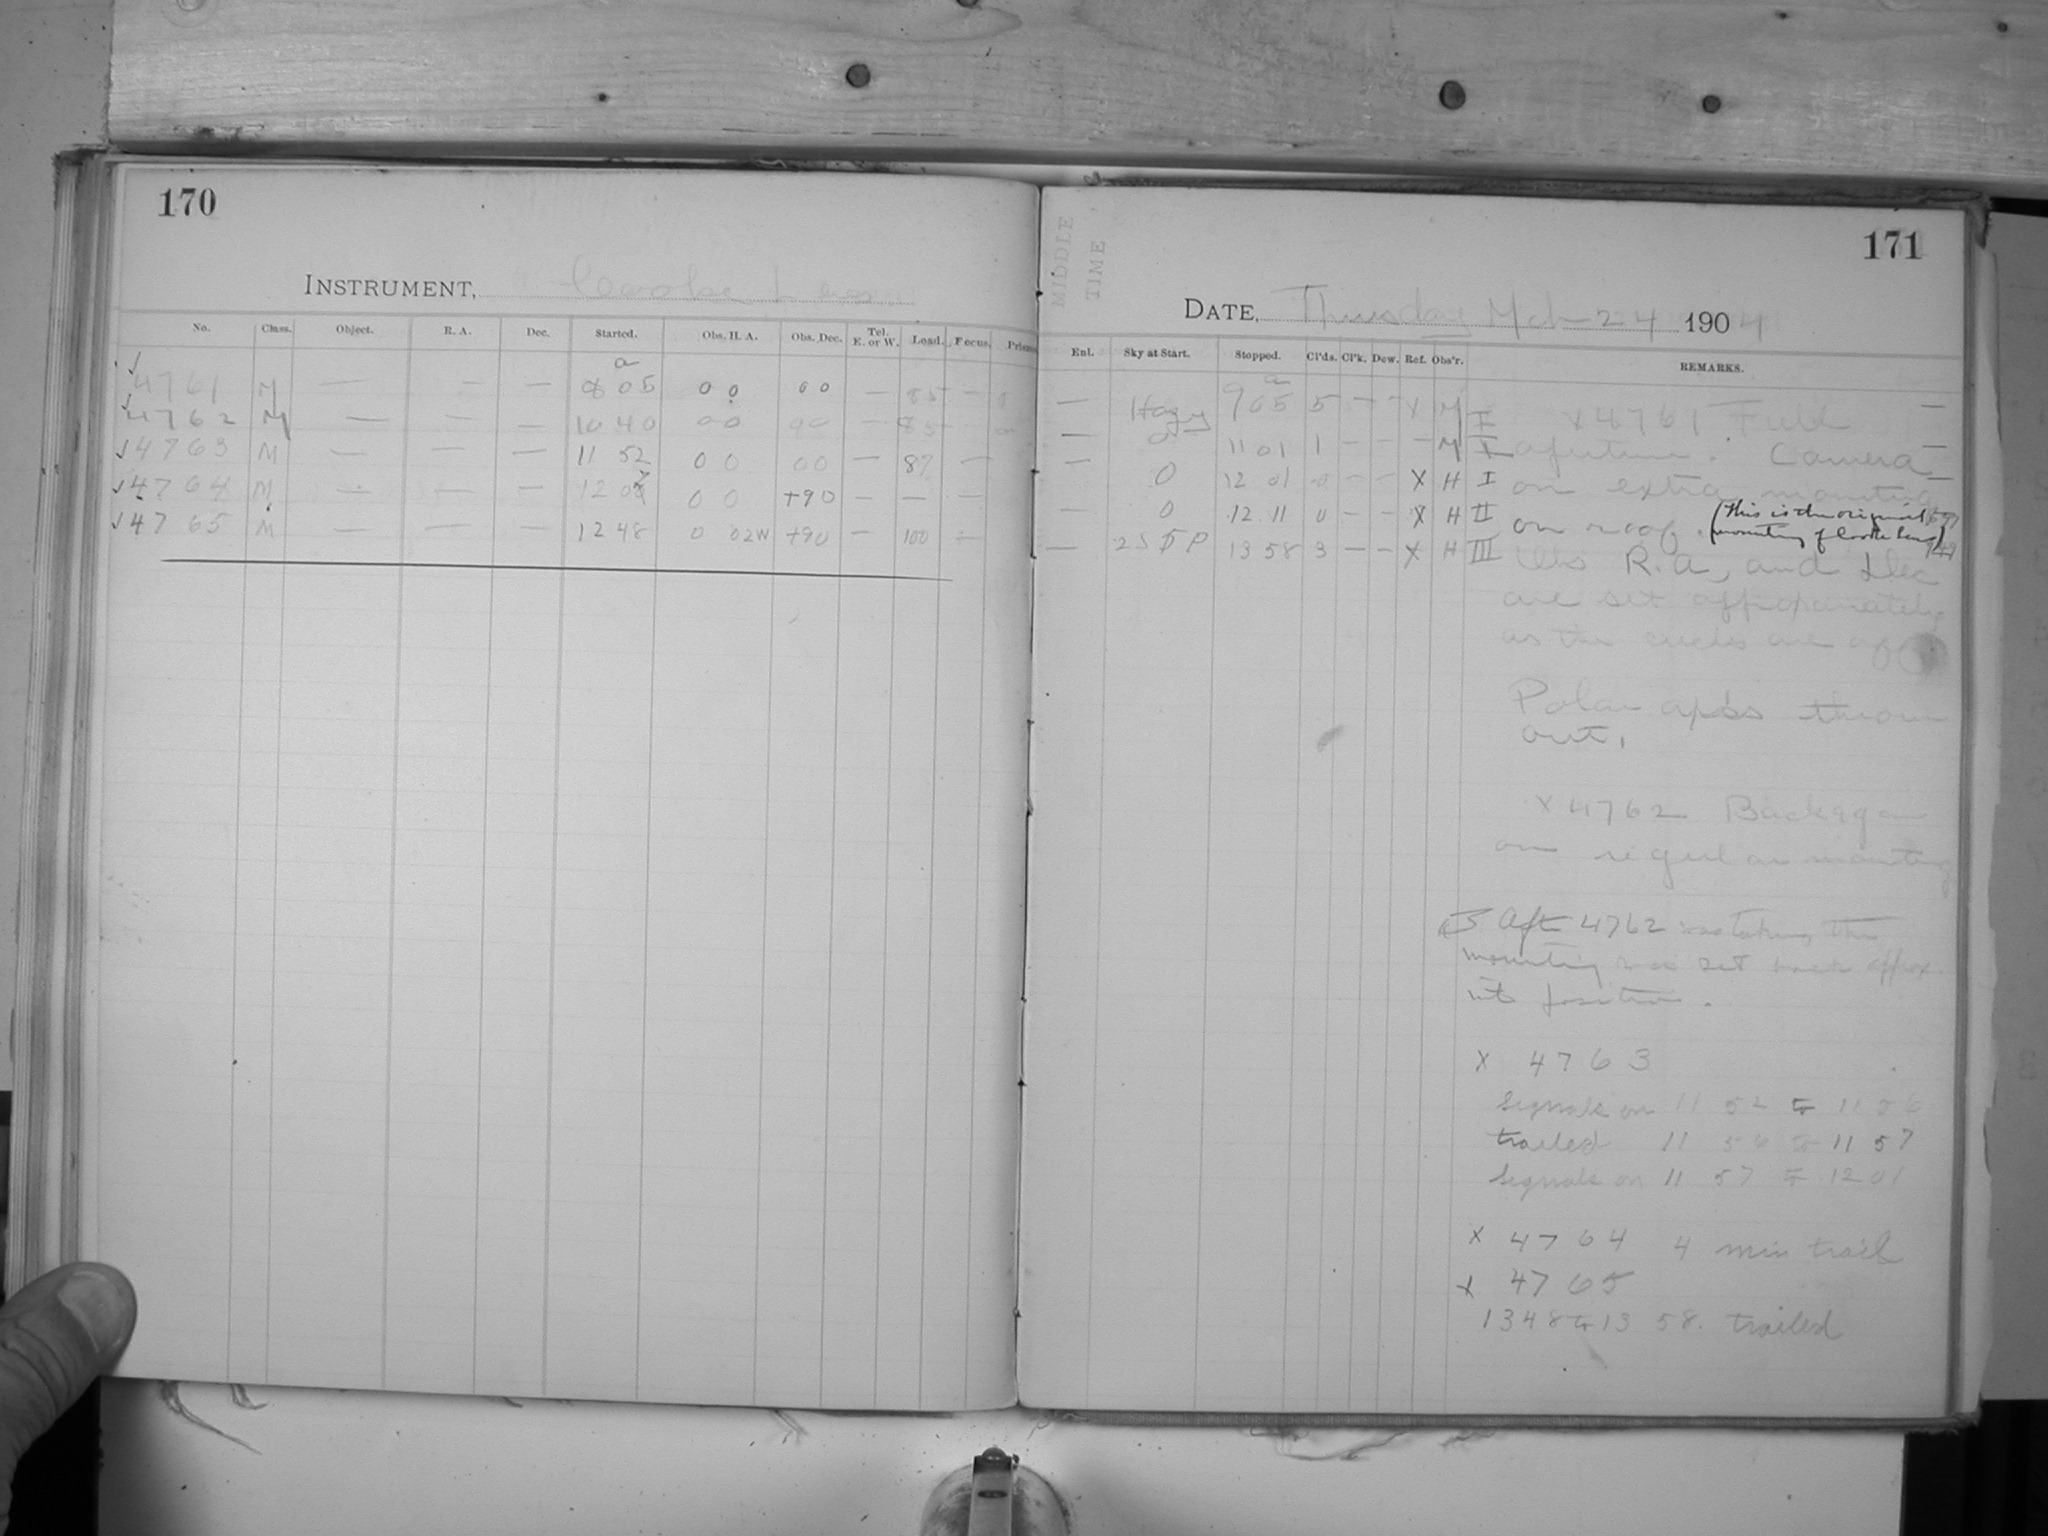 170
INSTRUMENT, Cooke Lens
No. Class. Object. R. A. Dec. Started. Obs. H. A. Obs. Dec. Tel. E. or W. Load. Focus.
a
✓ 4761 M — — — 8 05 0 0 0 0 — 85 —
✓ 4762 M — — — 10 40 0 0 — 85 —
✓ 4763 M — — — 11 52 0 0 0 0 — 87 —
✓ 4764 M — — — 12 07 0 0 +90 — — —
✓ 4765 M — — — 12 48 0 02W +90 — 100
171
MIDDLE
TIME
DATE, Thursday Mch 24 1904
Enl. Sky at Start. Stopped. Cl'ds. Cl'k. Dew. Ref. Obs'r. REMARKS.
a
— Hazy 9 05 5 — — X M I
— 0 11 01 1 — — — M I
— 0 12 01 0 — — X H I
— 0 12 11 0 — — X H II
— 13 58 3 — — X H III
X 4761 Full
aperture. Camera
on extra mounting
on roof. (This is the original
mounting of Cooke Lens)
R.A, and Dec
are set approximately
as the circles are off
Polar axis thrown
out,
X 4762 Back again
on regular mounting
After 4762 was taken, the
mounting was set back approx.
into position.
X 4763
Signals on 11 52 to 11 56
trailed 11 56 to 11 57
Signals on 11 57 to 12 01
X 4764 4 min trail
X 4765
13 48 to 13 58. trailed